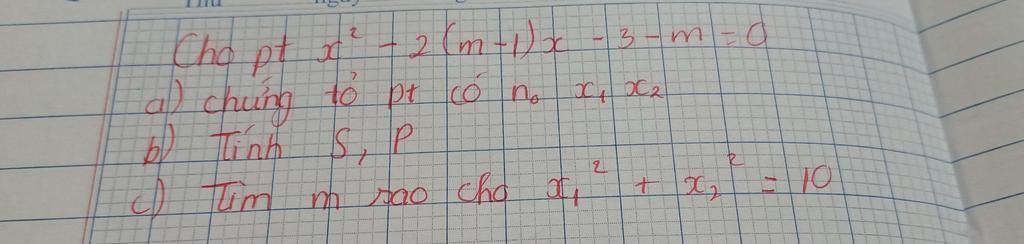 Cho pt x² - 2(m-1)x - 3 - m = 0
a) chứng tỏ pt có n₀ x₁ x₂
b) Tính S, P
c) Tìm m sao cho x₁² + x₂² = 10